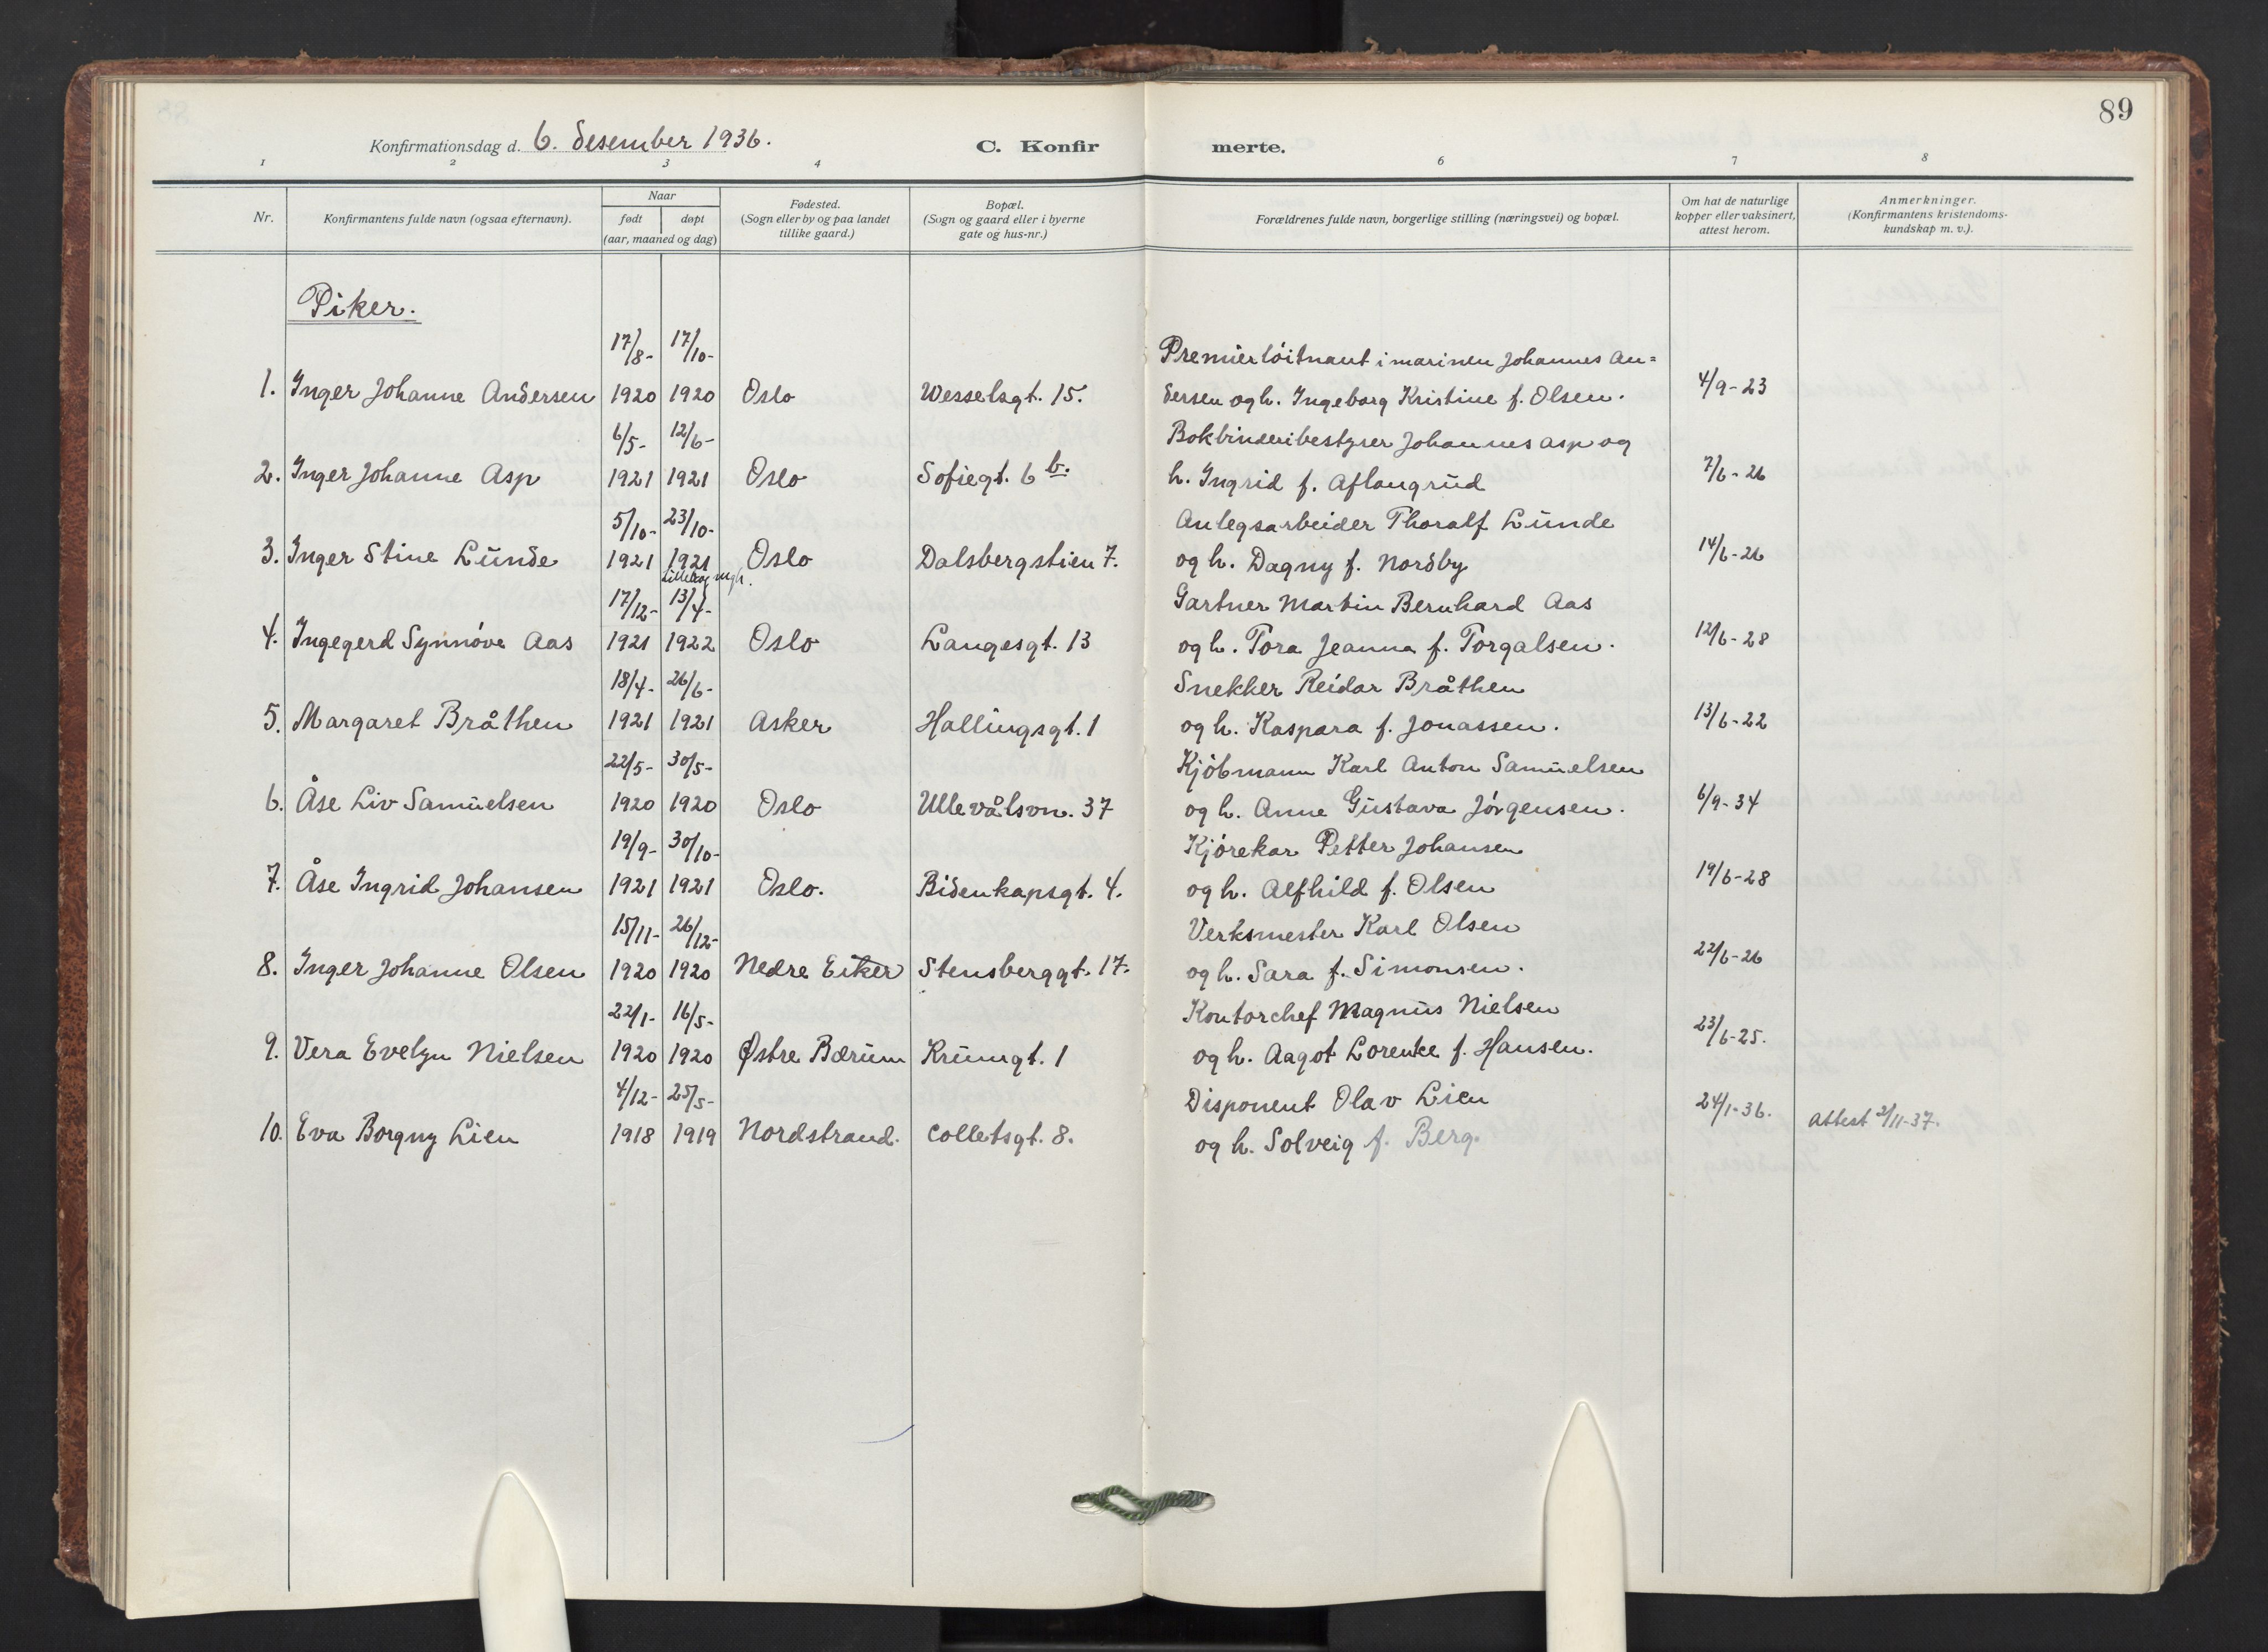 89
Konfirmationsdag d. 6. desember 1936. C. Konfir merte.
1 2 3 4 6 7 8
Nr.
Konfirmantens fulde navn (ogsaa efternavn).
Naar
født døpt
(aar, maaned og dag)
Fødested.
(Sogn eller by og paa landet
tillike gaard.)
Bopæl.
(Sogn og gaard eller i byerne
gate og hus-nr.)
Forældrenes fulde navn, borgerlige stilling (næringsvei) og bopæl.
Om hat de naturlige
kopper eller vaksinert,
attest herom.
Anmerkninger.
(Konfirmantens kristendoms-
kundskap m. v.).
Piker.
17/8- 17/10- Premierlöitnant i marinen Johannes An=
1. Inger Johanne Andersen 1920 1920 Oslo Wesselsgt. 15. dersen og h. Ingeborg Kristine f. Olsen. 4/9-23
6/5- 12/6- Bokbinderibestyrer Johannes Asp og
2. Inger Johanne Asp 1921 1921 Oslo Sofiegt. 6 b. h. Ingrid f. Aflangrud 7/6-26
5/10- 23/10- Anlegsarbeider Thoralf Lunde
3. Inger Stine Lunde 1921 1921 Oslo Dalsbergstien 7. og h. Dagny f. Nordby 14/6-26
17/12- 13/4- Gartner Martin Bernhard Aas
4. Ingegerd Synnöve Aas 1921 1922 Oslo Langesgt. 13 og h. Tora Jeanna f. Torgalsen. 12/6-28
18/4- 26/6- Snekker Reidar Bråthen
5. Margaret Bråthen 1921 1921 Asker Hallingsgt. 1 og h. Kaspara f. Jonassen. 13/6-22
22/5- 30/5- Kjöbmann Karl Anton Samuelsen
6. Åse Liv Samuelsen 1920 1920 Oslo Ullevålsvn. 37 og h. Anne Gustava Jörgensen. 6/9-34
19/9- 30/10- Kjörekar Petter Johansen
7. Åse Ingrid Johansen 1921 1921 Oslo. Bidenkapsgt. 4. og h. Alfhild f. Olsen 19/6-28
15/11- 26/12- Verksmester Karl Olsen
8. Inger Johanne Olsen 1920 1920 Nedre Eiker Stensberggt. 17. og h. Sara f. Simonsen. 22/6-26
22/1- 16/5- Kontorchef Magnus Nielsen
9. Vera Evelyn Nielsen 1920 1920 Østre Bærum Krumgt. 1 og h. Aagot Lorentze f. Hansen. 23/6-25.
4/12- 25/5- Disponent Olav Lien
10. Eva Borgny Lien 1918 1919 Nordstrand. Colletsgt. 8. og h. Solveig f. Berg. 24/1-36. Attest 2/11-37.